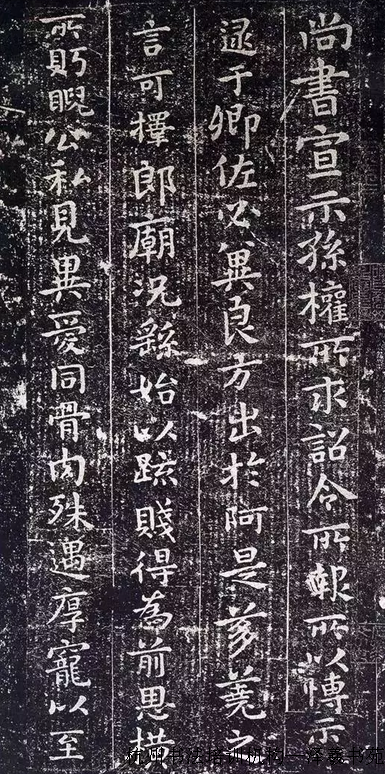 尚書宣示孫權所求詔令所報所以博示
逮于卿佐必冀良方出於阿是芻蕘之
言可擇郎廟況繇始以疏賤得為前恩横
所眄睨公私見異愛同骨肉殊遇厚寵以至
杭州书法培训杭州